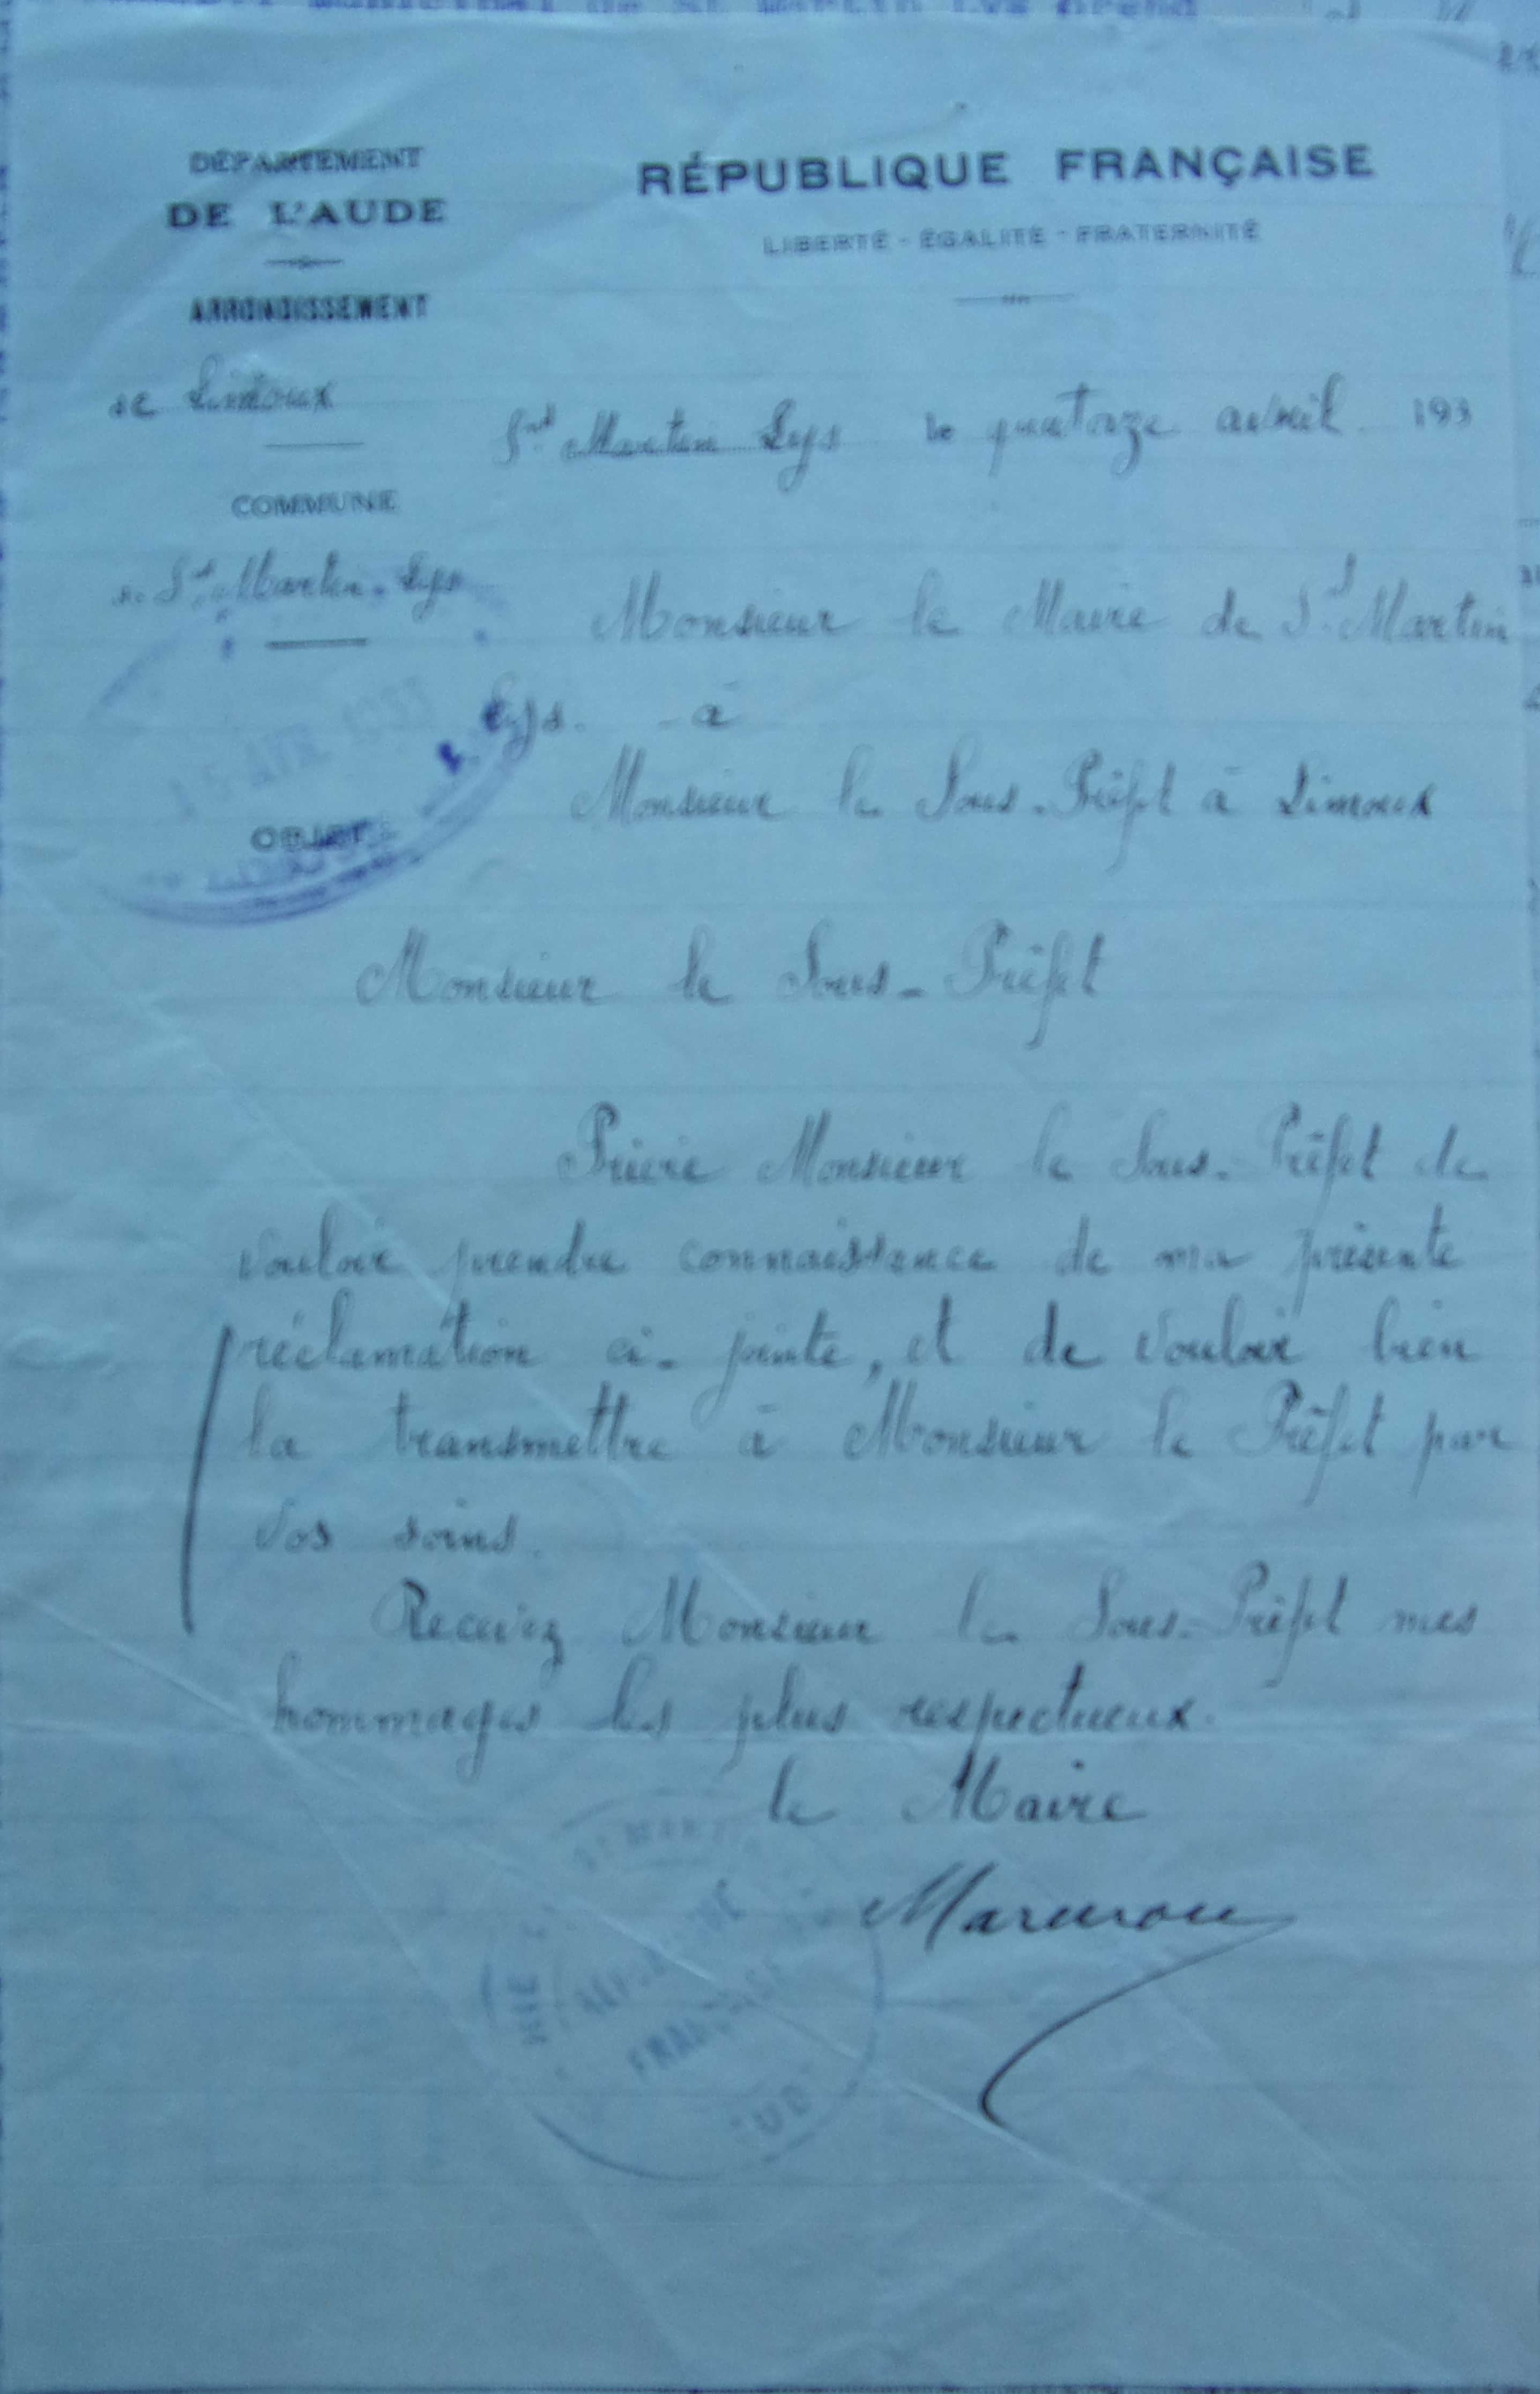 DÉPARTEMENT
DE L'AUDE
ARRONDISSEMENT
de Limoux
COMMUNE
de St Martin-Lys
OBJET
RÉPUBLIQUE FRANÇAISE
LIBERTÉ - ÉGALITÉ - FRATERNITÉ
St Martin Lys le quatorze avril 193
Monsieur le Maire de St Martin
Lys. à
Monsieur le Sous-Préfet à Limoux
Monsieur le Sous-Préfet
Prière Monsieur le Sous-Préfet de
vouloir prendre connaissance de ma présente
réclamation ci-jointe, et de vouloir bien
la transmettre à Monsieur le Préfet par
vos soins.
Recevez Monsieur le Sous-Préfet mes
hommages les plus respectueux.
le Maire